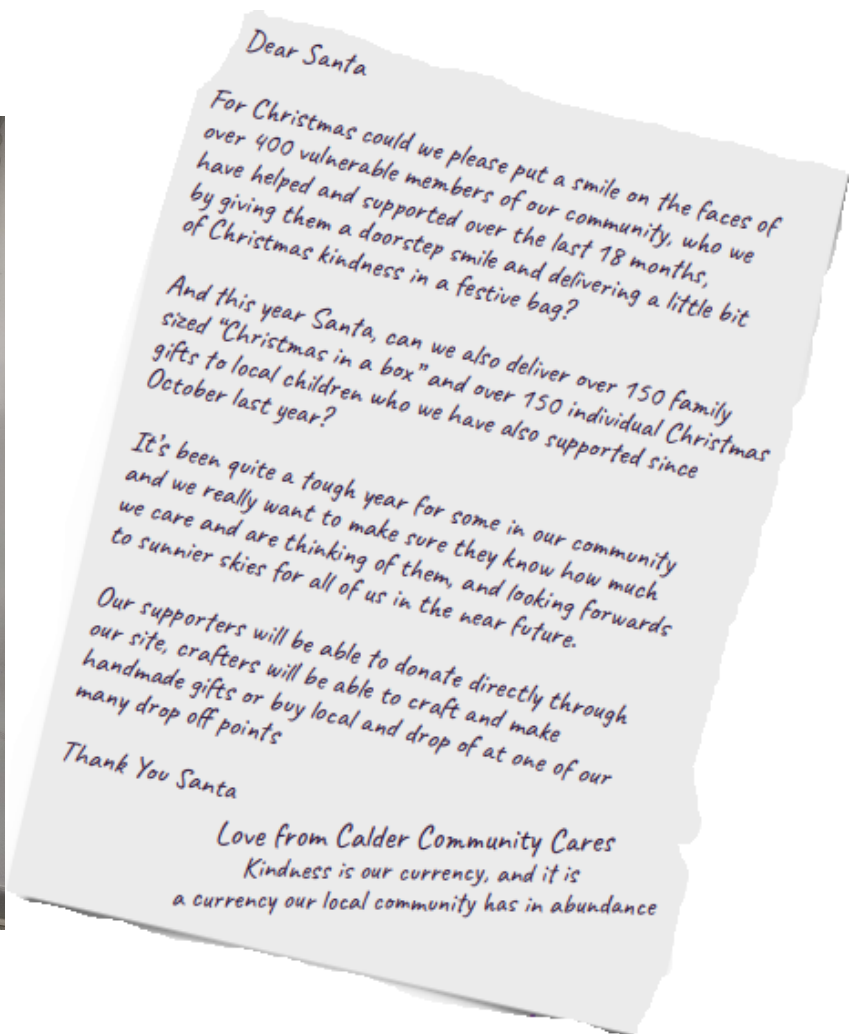 Dear Santa
For Christmas could we please put a smile on the faces of
over 400 vulnerable members of our community, who we
have helped and supported over the last 18 months,
by giving them a doorstep smile and delivering a little bit
of Christmas kindness in a festive bag?
And this year Santa, can we also deliver over 150 family
sized “Christmas in a box” and over 150 individual Christmas
gifts to local children who we have also supported since
October last year?
It's been quite a tough year for some in our community
and we really want to make sure they know how much
we care and are thinking of them, and looking forwards
to sunnier skies for all of us in the near future.
Our supporters will be able to donate directly through
our site, crafters will be able to craft and make
handmade gifts or buy local and drop of at one of our
many drop off points
Thank You Santa
Love from Calder Community Cares
Kindness is our currency, and it is
a currency our local community has in abundance